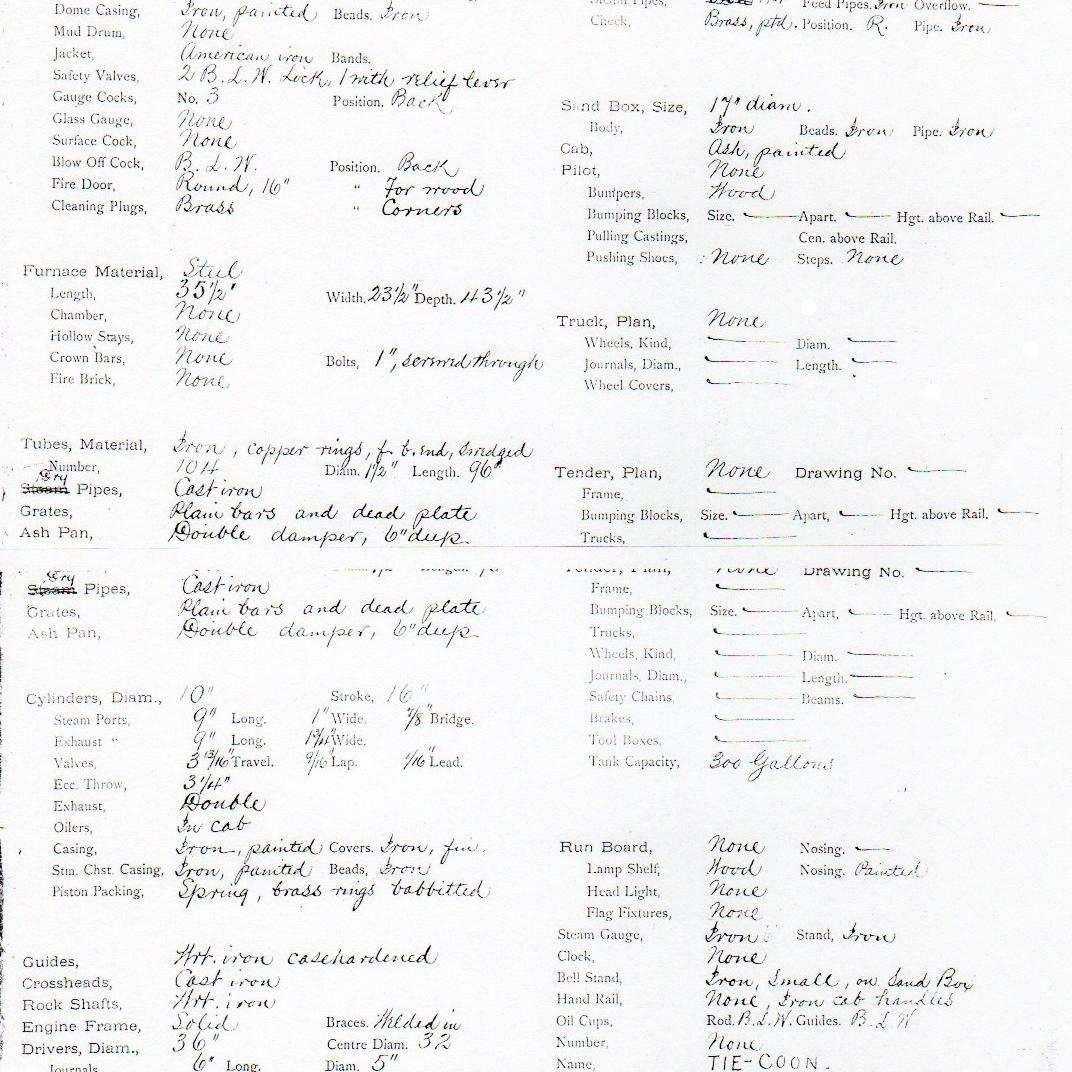 Dome Casing, Iron, painted Beads. Iron
Mud Drum, None
Jacket, American iron Bands.
Safety Valves, 2 B.L.W. Lock, 1 with relief lever
Gauge Cocks, No. 3 Position. Back
Glass Gauge, None
Surface Cock, None
Blow Off Cock, B.L.W. Position. Back
Fire Door, Round, 16" " For wood
Cleaning Plugs, Brass " Corners
Furnace Material, Steel
Length, 35 1/2" Width. 23 1/2" Depth. 43 1/2"
Chamber, None
Hollow Stays, None
Crown Bars, None Bolts, 1", screwed through
Fire Brick, None
Tubes, Material, Iron, copper rings, f. b. end, swedged
Number, 104 Diam. 1 1/2" Length. 96"
Dry
Steam Pipes, Cast iron
Grates, Plain bars and dead plate
Ash Pan, Double damper, 6" deep.
Dry
Steam Pipes, Cast iron
Grates, Plain bars and dead plate
Ash Pan, Double damper, 6" deep
Cylinders, Diam., 10" Stroke, 16"
Steam Ports, 9" Long. 1" Wide. 7/8" Bridge.
Exhaust " 9" Long. 1 3/4" Wide.
Valves, 3 13/16" Travel. 9/16" Lap. 1/16" Lead.
Ecc. Throw, 3 1/4"
Exhaust, Double
Oilers, In cab
Casing, Iron, painted Covers. Iron, fin.
Stm. Chst. Casing, Iron, painted Beads, Iron
Piston Packing, Spring, brass rings babbitted
Guides, Wrt. iron casehardened
Crossheads, Cast iron
Rock Shafts, Wrt. iron
Engine Frame, Solid Braces. Welded in
Drivers, Diam., 36" Centre Diam. 32
Journals 6" Long. Diam. 5"
Steam Pipes, Feed Pipes. Iron Overflow.
Check, Brass, ptd. Position. R. Pipe. Iron
Sand Box, Size, 17" diam.
Body, Iron Beads. Iron Pipe. Iron
Cab, Ash, painted
Pilot, None
Bumpers, Wood
Bumping Blocks, Size. Apart. Hgt. above Rail.
Pulling Castings, Cen. above Rail.
Pushing Shoes, None Steps. None
Truck, Plan, None
Wheels, Kind, Diam.
Journals, Diam., Length.
Wheel Covers,
Tender, Plan, None Drawing No.
Frame,
Bumping Blocks, Size. Apart, Hgt. above Rail.
Trucks,
Tender, Plan, None Drawing No.
Frame,
Bumping Blocks, Size. Apart, Hgt. above Rail.
Trucks,
Wheels, Kind, Diam.
Journals, Diam., Length.
Safety Chains, Beams.
Brakes,
Tool Boxes,
Tank Capacity, 300 Gallons
Run Board, None Nosing.
Lamp Shelf, Wood Nosing. Painted
Head Light, None
Flag Fixtures, None
Steam Gauge, Iron Stand, Iron
Clock, None
Bell Stand, Iron, Small, on Sand Box
Hand Rail, None, Iron cab handles
Oil Cups, Rod. B.L.W. Guides. B L W
Number, None
Name, TIE-COON.